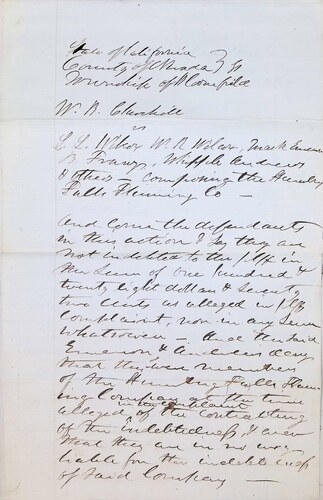 State of California
County of Nevada } SS
Township of Bloomfield
W. B. Churchill
vs
L. L. W. R. Wilcox, Mark Emerson
B. Franz, Whipple Andrews
& others — composing the Hunting
Falls Fluming Co —
And come the defendants
in this action & say they are
not indebted to the plff in
the sum of one hundred &
twenty eight dollars & seventy
two cents as alleged in plffs
complaint, nor in any sum
whatsoever — And the said
Emerson & Andrews deny
that they were members
of the Hunting Falls Flum
ing Company at the time
in the complaint
alleged, of the contracting
of the indebtedness, & aver
that they are in no way
liable for the indebtedness
of said Company —